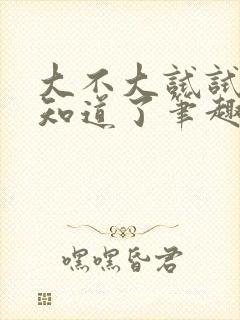 大不大试试
知道了笔趣
嘿嘿昏君